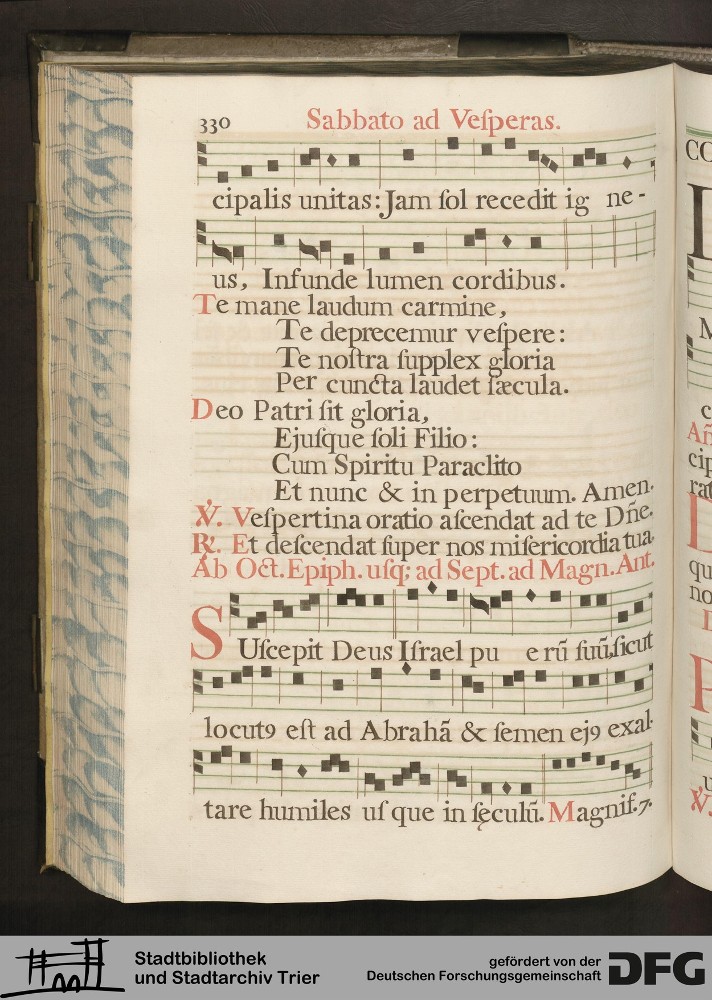 330 Sabbato ad Veſperas.
cipalis unitas: Jam ſol recedit ig ne-
us, Infunde lumen cordibus.
Te mane laudum carmine,
Te deprecemur veſpere:
Te noſtra ſupplex gloria
Per cuncta laudet ſæcula.
Deo Patri ſit gloria,
Ejuſque ſoli Filio:
Cum Spiritu Paraclito
Et nunc & in perpetuum. Amen.
℣. Veſpertina oratio aſcendat ad te Dñe.
℟. Et deſcendat ſuper nos miſericordia tua.
Ab Oct. Epiph. uſq; ad Sept. ad Magn. Ant.
SUſcepit Deus Iſrael pu erũ ſuũ, ſicut
locutꝰ eſt ad Abrahã & ſemen ejꝰ exal-
tare humiles uſ que in ſęculũ. Magnif. 7.
CO
M
c
Añ
cip
rat
qu
no
℣.
Stadtbibliothek
und Stadtarchiv Trier
gefördert von der
Deutschen Forschungsgemeinschaft
DFG